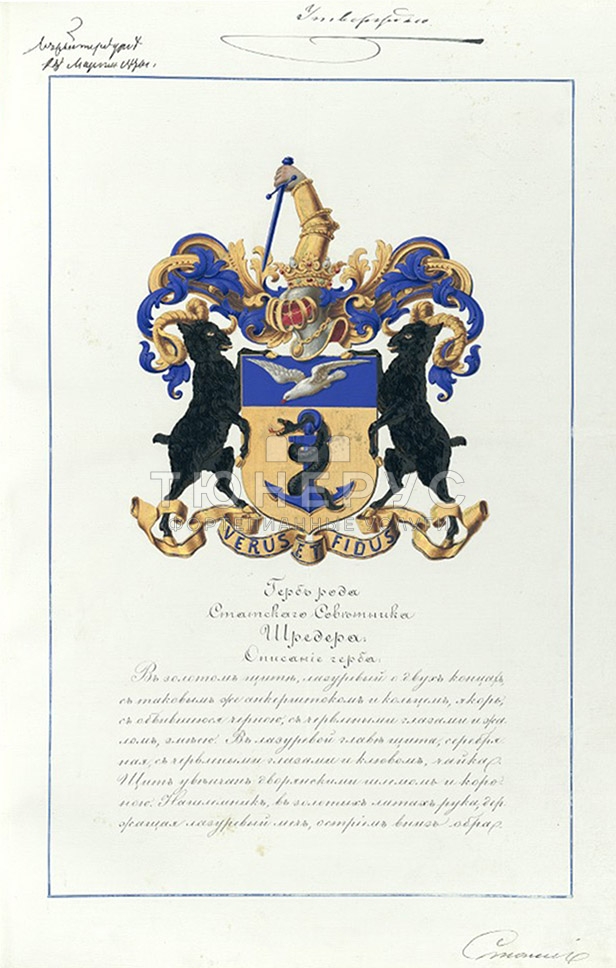 Утверждаю.
VERUS ET FIDUS
ТЮНЕРУС
Гербъ рода
Статскаго Совѣтника
Шредера.
Описаніе герба.
Въ золотомъ щитѣ, лазуревый о двухъ концахъ,
съ таковымъ же анкерштокомъ и кольцемъ, якорь,
съ обвившеюся черною, съ червлеными глазами и жа-
ломъ, змѣею. Въ лазуревой главѣ щита, серебря-
ная, съ червлеными глазами и клювомъ, чайка.
Щитъ увѣнчанъ дворянскими шлемомъ и коро-
ною. Нашлемникъ, въ золотыхъ латахъ рука, дер-
жащая лазуревый мечъ, остріемъ внизъ обра-